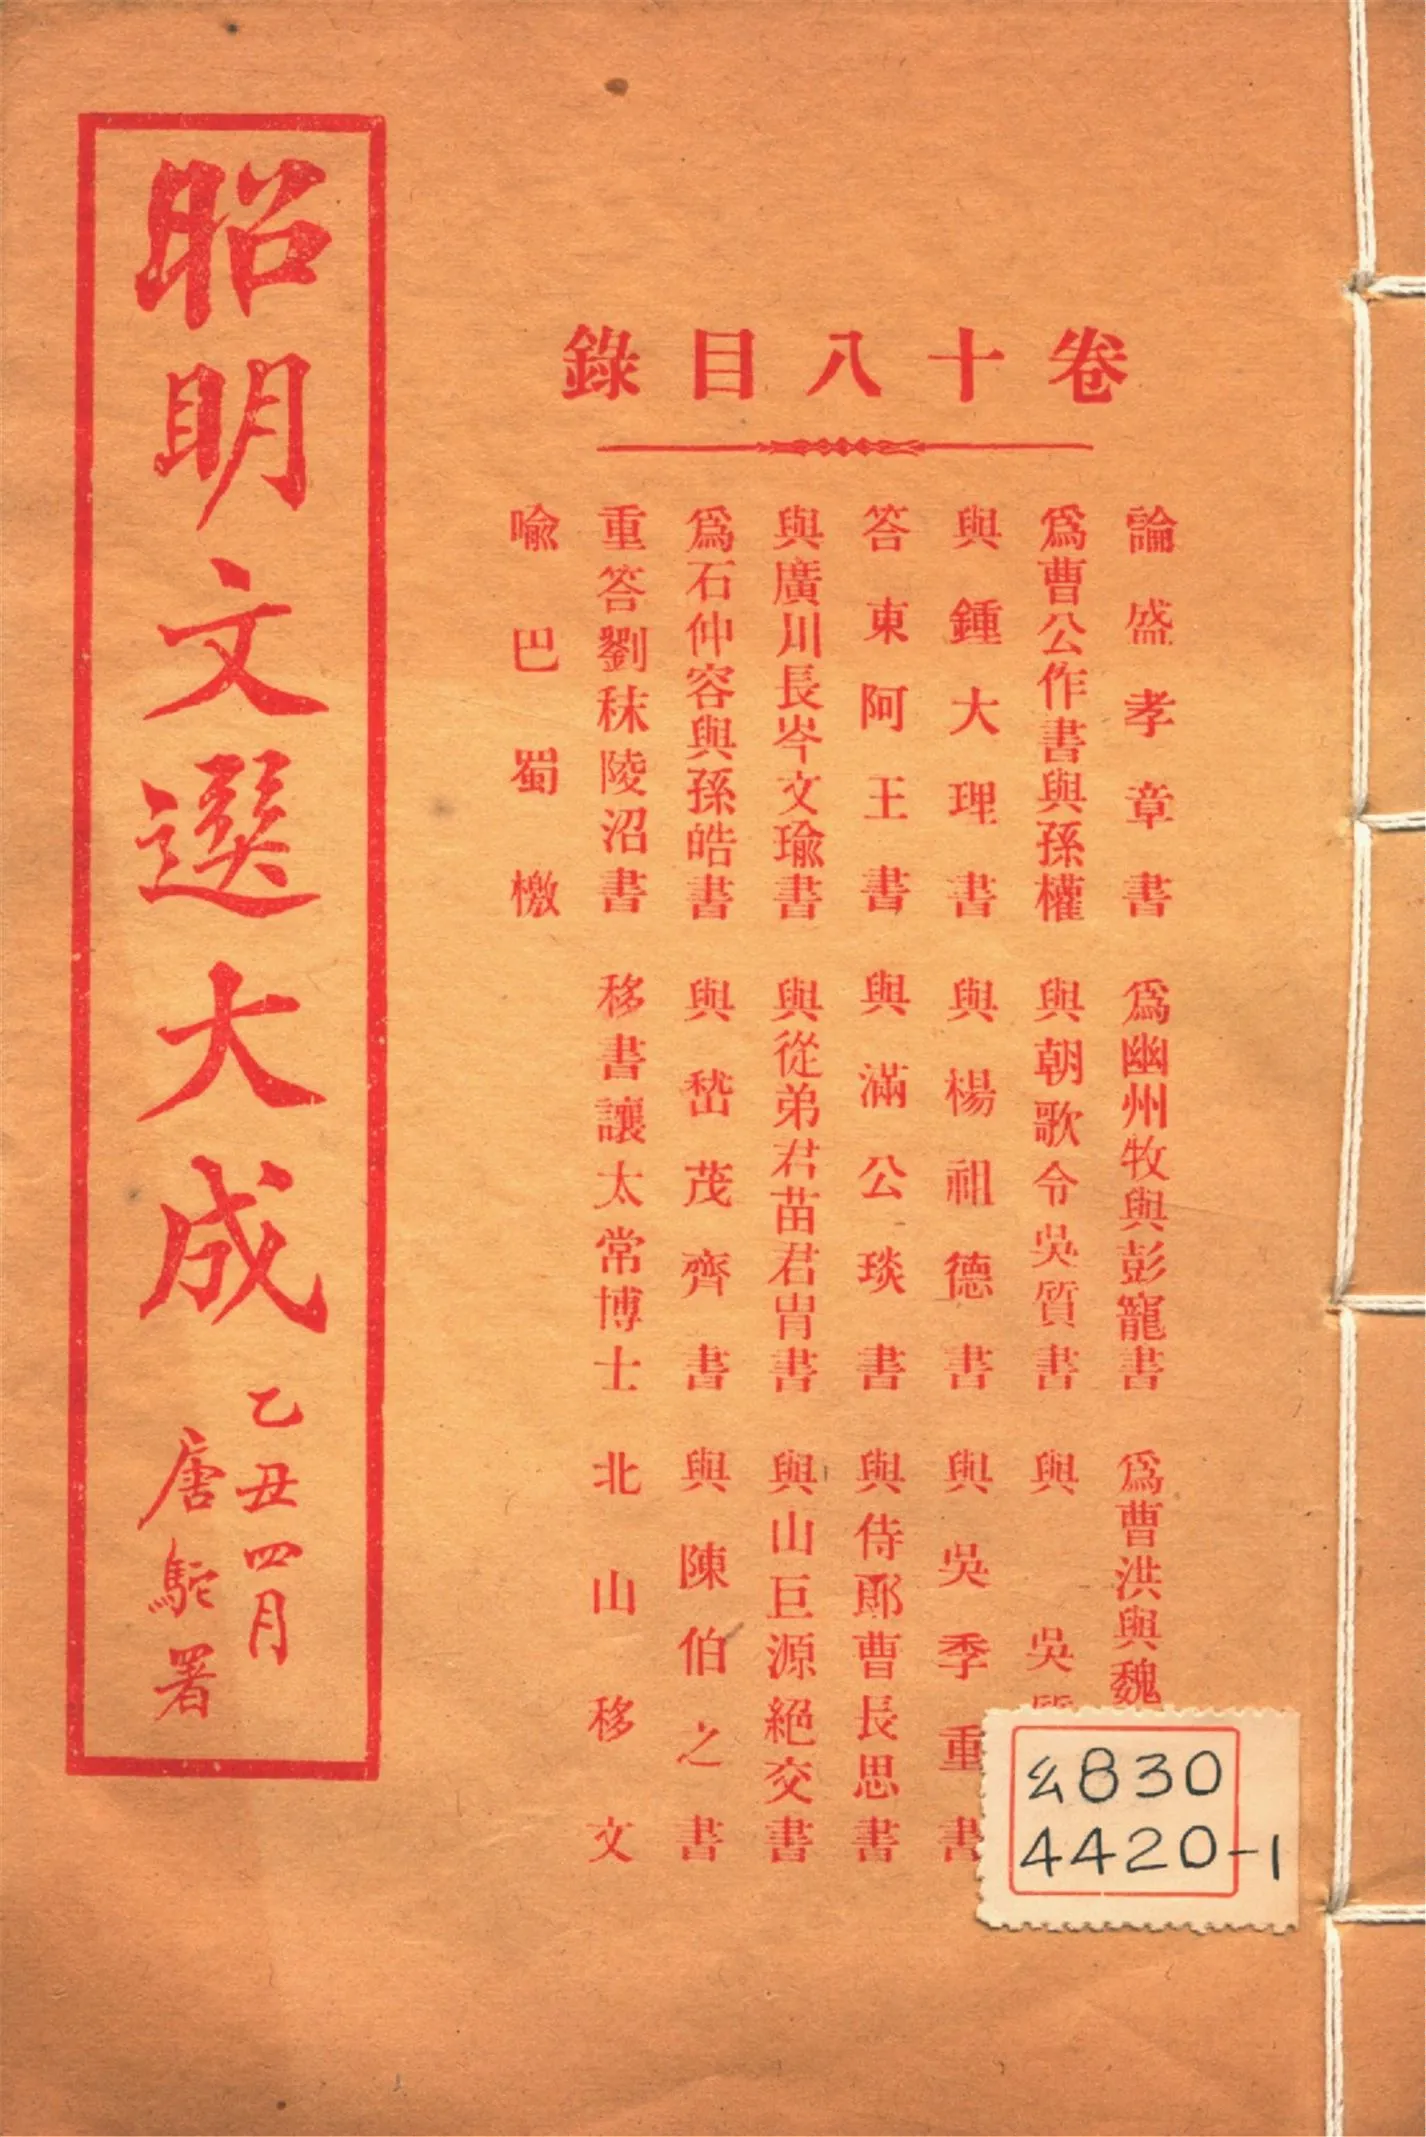 卷十八目錄
論盛孝章書 爲幽州牧與彭寵書 爲曹洪與魏
爲曹公作書與孫權 與朝歌令吳質書 與吳
與鍾大理書 與楊祖德書 與吳季重書
答東阿王書 與滿公琰書 與侍郎曹長思書
與廣川長岑文瑜書 與從弟君苗君冑書 與山巨源絕交書
爲石仲容與孫皓書 與嵇茂齊書 與陳伯之書
重答劉秣陵沼書 移書讓太常博士 北山移文
喻巴蜀檄
昭明文選大成
乙丑四月
唐駝署
幺830
4420-1